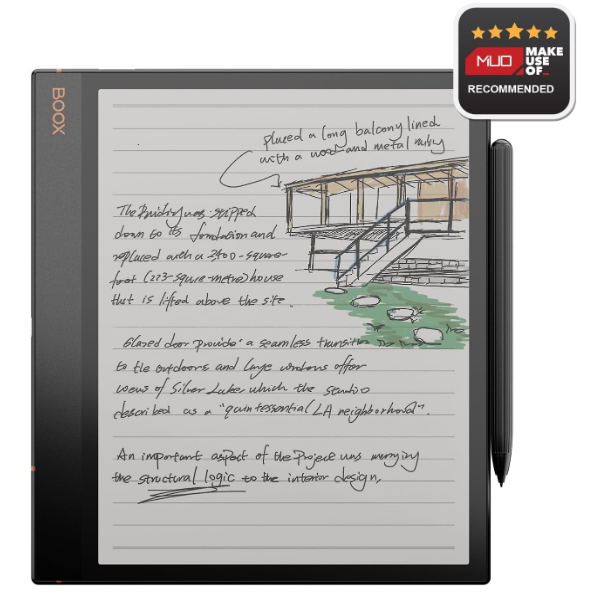 MUO
MAKE
USE
OF_
RECOMMENDED
BOOX
placed a long balcony lined
with a wood and metal railing
The Building was stripped
down to its fondation and
replaced with a 2400-square-
foot (223-squre-metre) house
that is lifted above the site.
Glazed door provide a seamless transition
to the outdoors and large windows offer
views of Silver Lake which the studio
described as a "quintessential LA neighborhood".
An important aspect of the Project was marrying
the structural logic to the interior design,